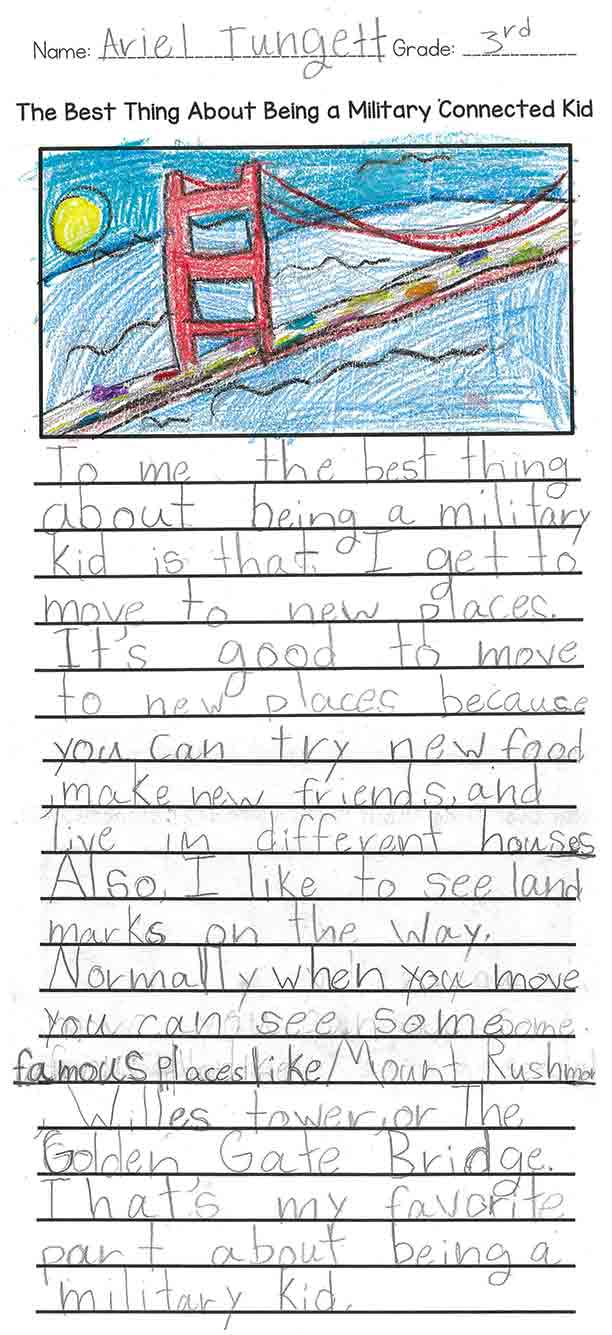 Name: Ariel Tungett Grade: 3rd
The Best Thing About Being a Military Connected Kid
To me the best thing
about being a military
kid is that I get to
move to new places.
It's good to move
to new places because
you can try new food
, make new friends, and
live in different houses
Also, I like to see land
marks on the way.
Normally when you move
you can see some
famous places like Mount Rushmor
, Willes tower, or The
Golden Gate Bridge.
That's my favorite
part about being a
military kid.